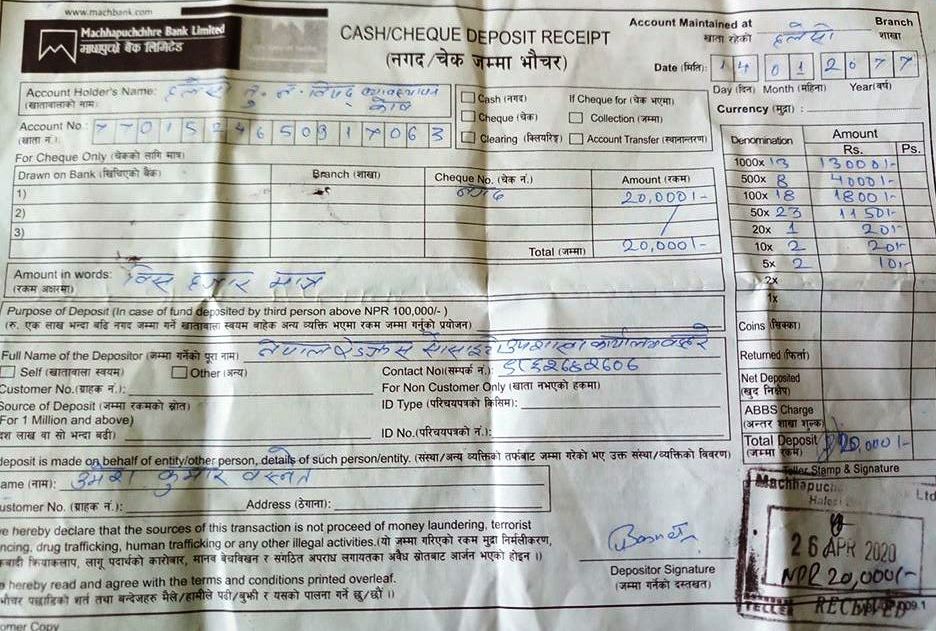 www.machbank.com
Machhapuchchhre Bank Limited
माछापुच्छ्रे बैंक लिमिटेड
CASH/CHEQUE DEPOSIT RECEIPT
(नगद/चेक जम्मा भौचर)
Account Maintained at Branch
खाता रहेको हलेसी शाखा
Date (मिति): 14 01 2077
Day (दिन) Month (महिना) Year(वर्ष)
Currency (मुद्रा) :
Account Holder's Name: हलेसी तु. न. विपद व्यवस्थापन कोष
(खातावालाको नाम:
Account No.: 7701524650917063
(खाता नं.:
Cash (नगद) If Cheque for (चेक भएमा)
Cheque (चेक) Collection (जम्मा)
Clearing (क्लियरिङ) Account Transfer (स्थानान्तरण)
For Cheque Only (चेकको लागि मात्र)
Drawn on Bank (खिचिएको बैंक) Branch (शाखा) Cheque No. (चेक नं.) Amount (रकम)
1) नगद 20,000/-
2)
3)
Total (जम्मा) 20,000/-
Denomination Amount
Rs. Ps.
1000x 13 13000/-
500x 8 4000/-
100x 18 1800/-
50x 23 1150/-
20x 1 20/-
10x 2 20/-
5x 2 10/-
2x
1x
Coins (सिक्का)
Returned (फिर्ता)
Net Deposited
(खुद निक्षेप)
ABBS Charge
(अन्तर शाखा शुल्क)
Total Deposit 20,000/-
(जम्मा रकम)
Amount in words: विस हजार मात्र
(रकम अक्षरमा)
Purpose of Deposit (In case of fund deposited by third person above NPR 100,000/-)
(रु. एक लाख भन्दा बढि नगद जम्मा गर्ने खातावाला स्वयम बाहेक अन्य व्यक्ति भएमा रकम जम्मा गर्नुको प्रयोजन)
Full Name of the Depositor (जम्मा गर्नेको पुरा नाम) नेपाल रेडक्रस सोसाइटी उपशाखा कार्यालय
Self (खातावाला स्वयम) Other (अन्य) Contact No(सम्पर्क नं.:)
Customer No.(ग्राहक नं.): For Non Customer Only (खाता नभएको हकमा)
Source of Deposit (जम्मा रकमको स्रोत) ID Type (परिचयपत्रको किसिम):
For 1 Million and above)
दश लाख वा सो भन्दा बढी) ID No.(परिचयपत्रको नं.):
deposit is made on behalf of entity/other person, details of such person/entity. (संस्था/अन्य व्यक्तिको तर्फबाट जम्मा गरेको भए उक्त संस्था/व्यक्तिको विवरण)
ame (नाम): उमेश कुमार बस्नेत
ustomer No. (ग्राहक नं.): Address (ठेगाना):
e hereby declare that the sources of this transaction is not proceed of money laundering, terrorist
ncing, drug trafficking, human trafficking or any other illegal activities.(यो जम्मा गरिएको रकम मुद्रा निर्मलीकरण,
कवादी क्रियाकलाप, लागू पदार्थको कारोबार, मानव बेचबिखन र संगठित अपराध लगायतका अवैध स्रोतबाट आर्जन भएको होइन ।)
e hereby read and agree with the terms and conditions printed overleaf.
भौचर पछाडिको शर्त तथा बन्देजहरु मैले/हामीले पढी/बुझी र यसको पालना गर्ने छु/छौं ।)
Depositor Signature
(जम्मा गर्नेको दस्तखत)
Teller Stamp & Signature
Machhapuchc Ltd
26 APR 2020
NPR 20,000/-
TELLER RECEIVED
009.1
omer Copy